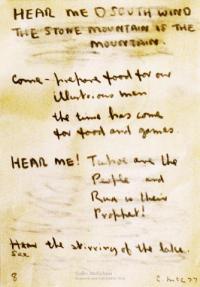 HEAR ME O SOUTH WIND
THE STONE MOUNTAIN IS THE
MOUNTAIN.
Come - prepare food for our
illustrious men
the time has come
for food and games.
HEAR ME! Tuhoe are the
People and
Rua is their
Prophet!
Hear the stirring of the lake.
8
C. McC 77